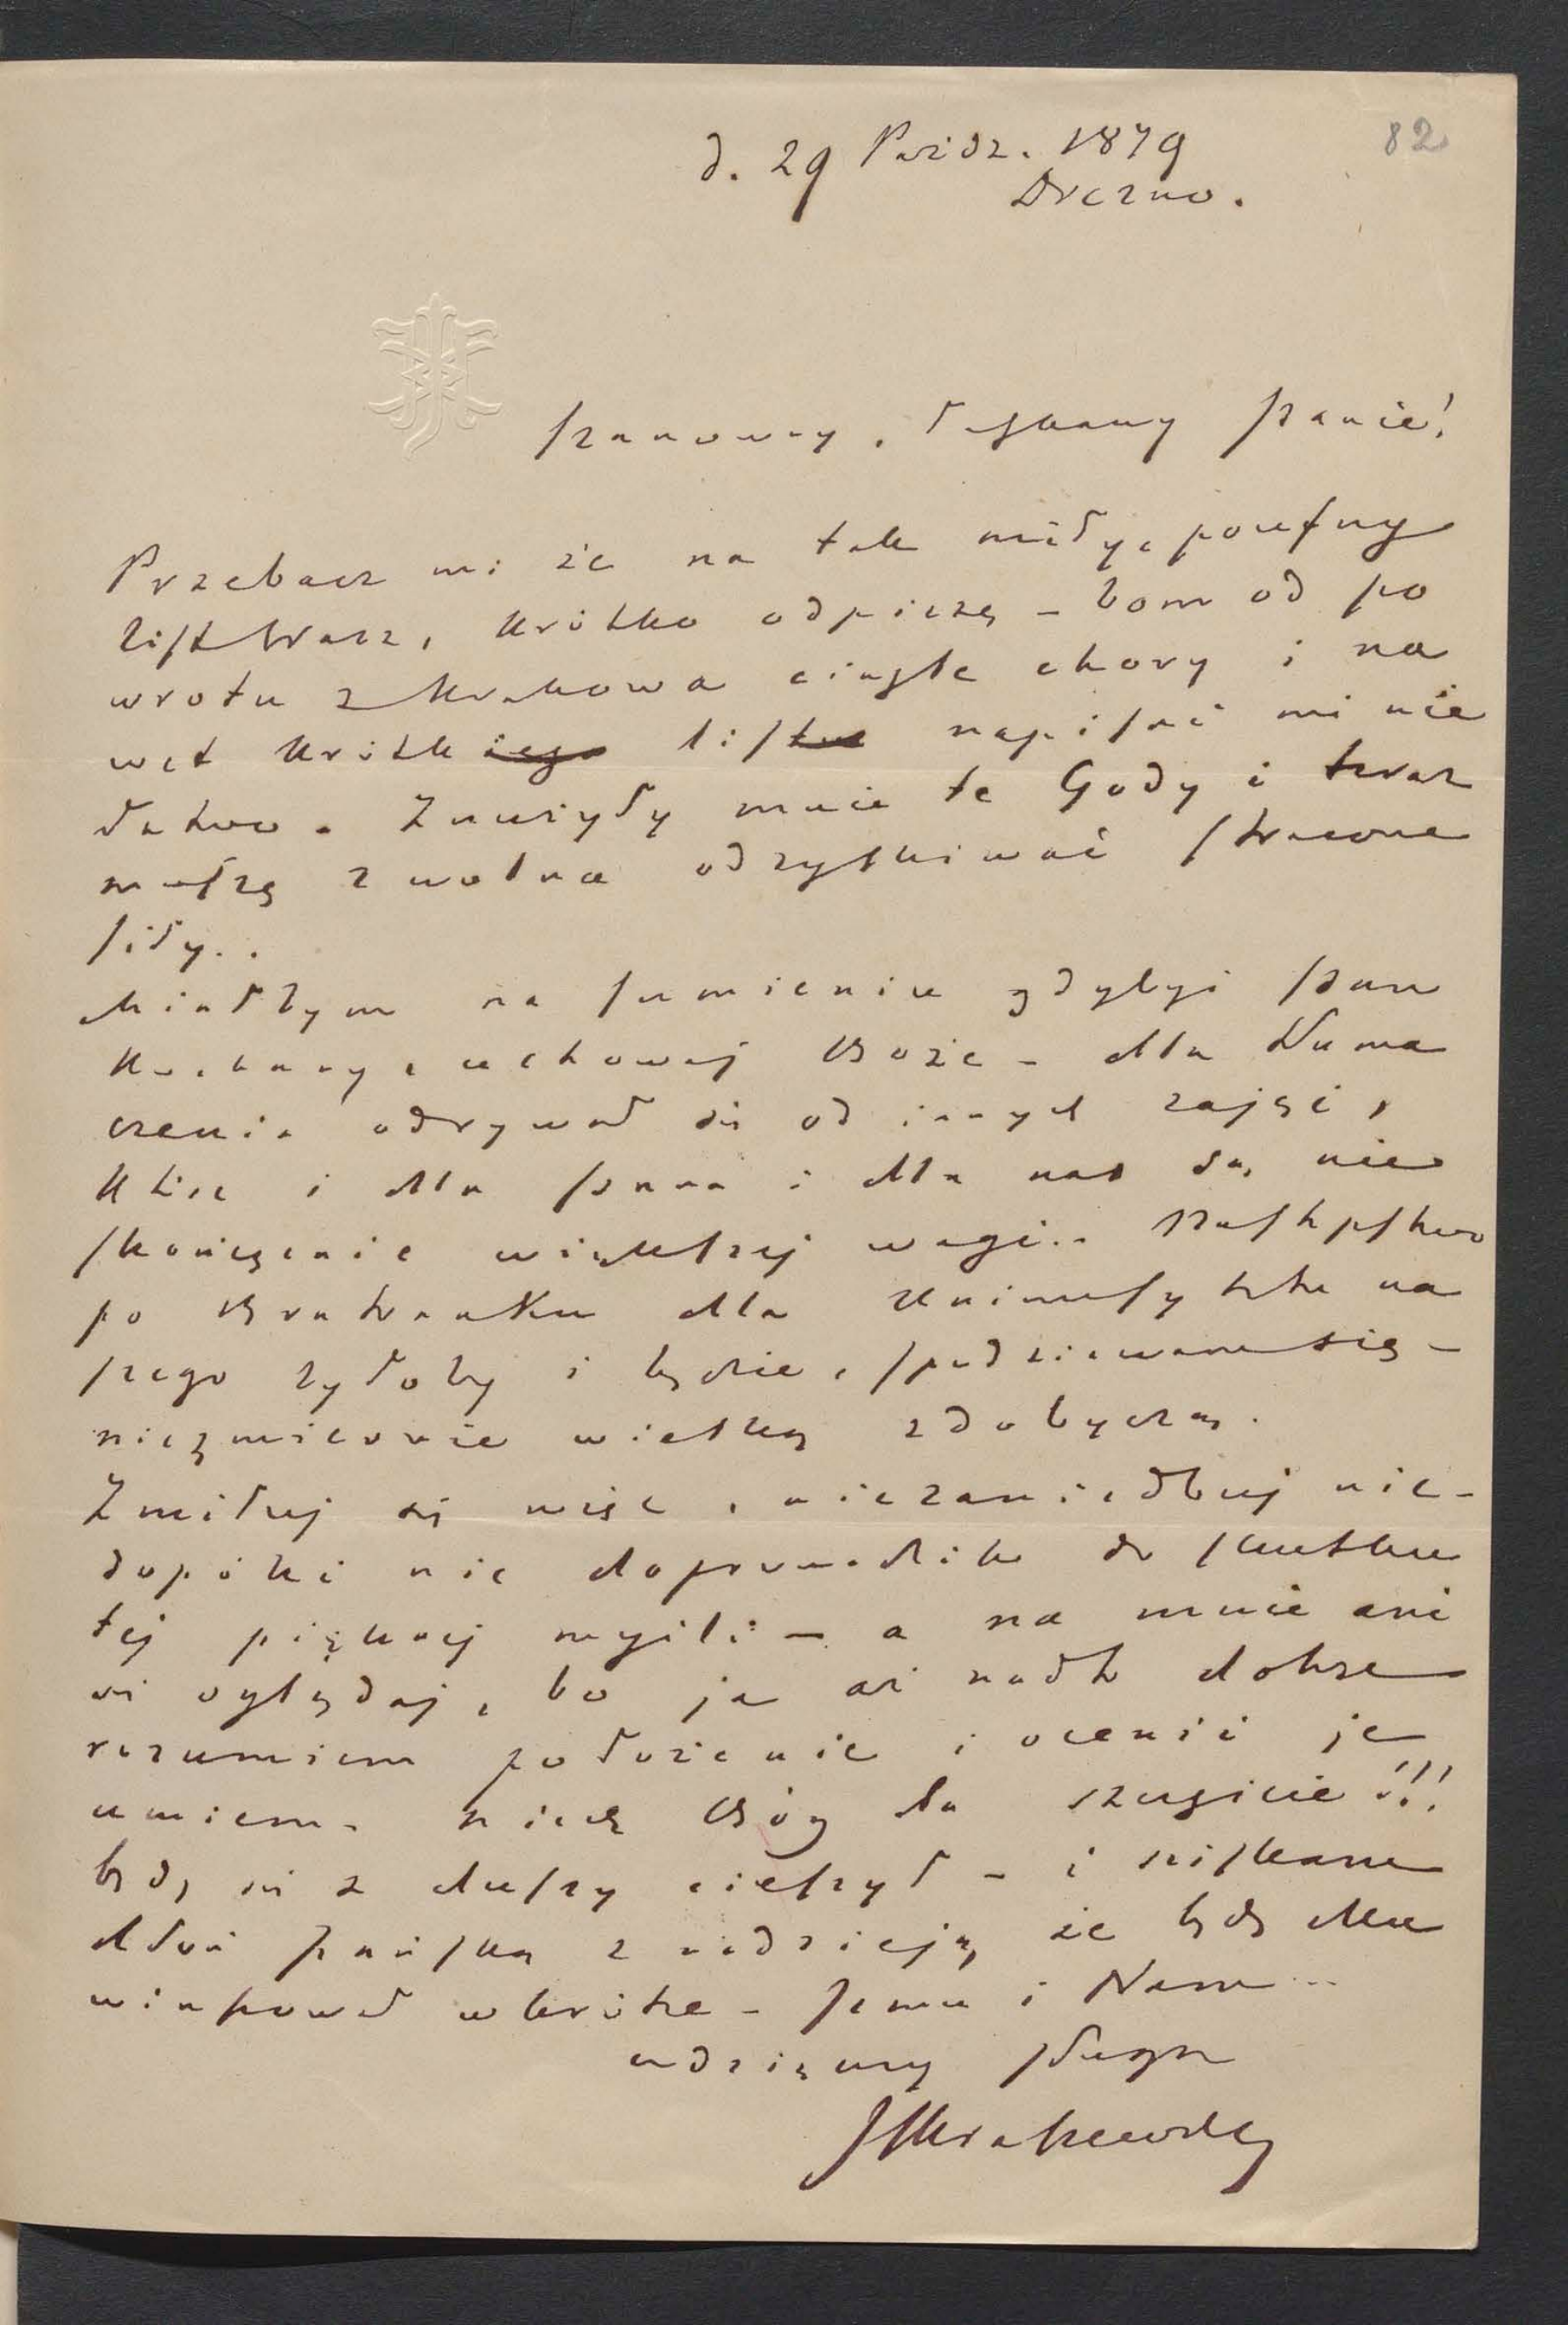 82
d. 29 Paźdz. 1879
Drezno.
Szanowny, Łaskawy Panie!
Przebacz mi że na tak miły, poufny
list Wasz, krótko odpiszę – bom od po
wrotu z Krakowa ciągle chory i na
wet krótkiego listu napisać mi nie
łatwo. Znużyły mnie te Gody i teraz
muszę zwolna odzyskiwać stracone
siły..
Miałbym na sumieniu gdybyś Pan
Kochany, uchowaj Boże – dla tłuma
czenia odrywał się od innych zajęć,
które i dla Pana i dla nas są nie
skończenie większej wagi.. Następstwo
po Bratranku dla Uniwersytetu na
szego byłoby i będzie, spodziewam się –
niezmiernie wielką zdobyczą.
Zmiłuj się więc, nie zaniedbuj nic –
dopóki nie doprowadzim do skutku
tej pięknej myśli – a na mnie ani
się oglądaj, bo ja aż nadto dobrze
rozumiem położenie i ocenić je
umiem. Niech Bóg da szczęście!!!
będę się z duszy cieszył – i ściskam
dłoń Pańską z nadzieją, że będę Mu
winszował wkrótce – Jemu i Nam...
wdzięczny sługa
JIKraszewski